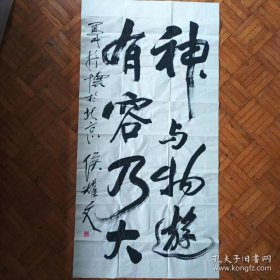 神与物游
有容乃大
于北京 侯耀文
孔夫子旧书网